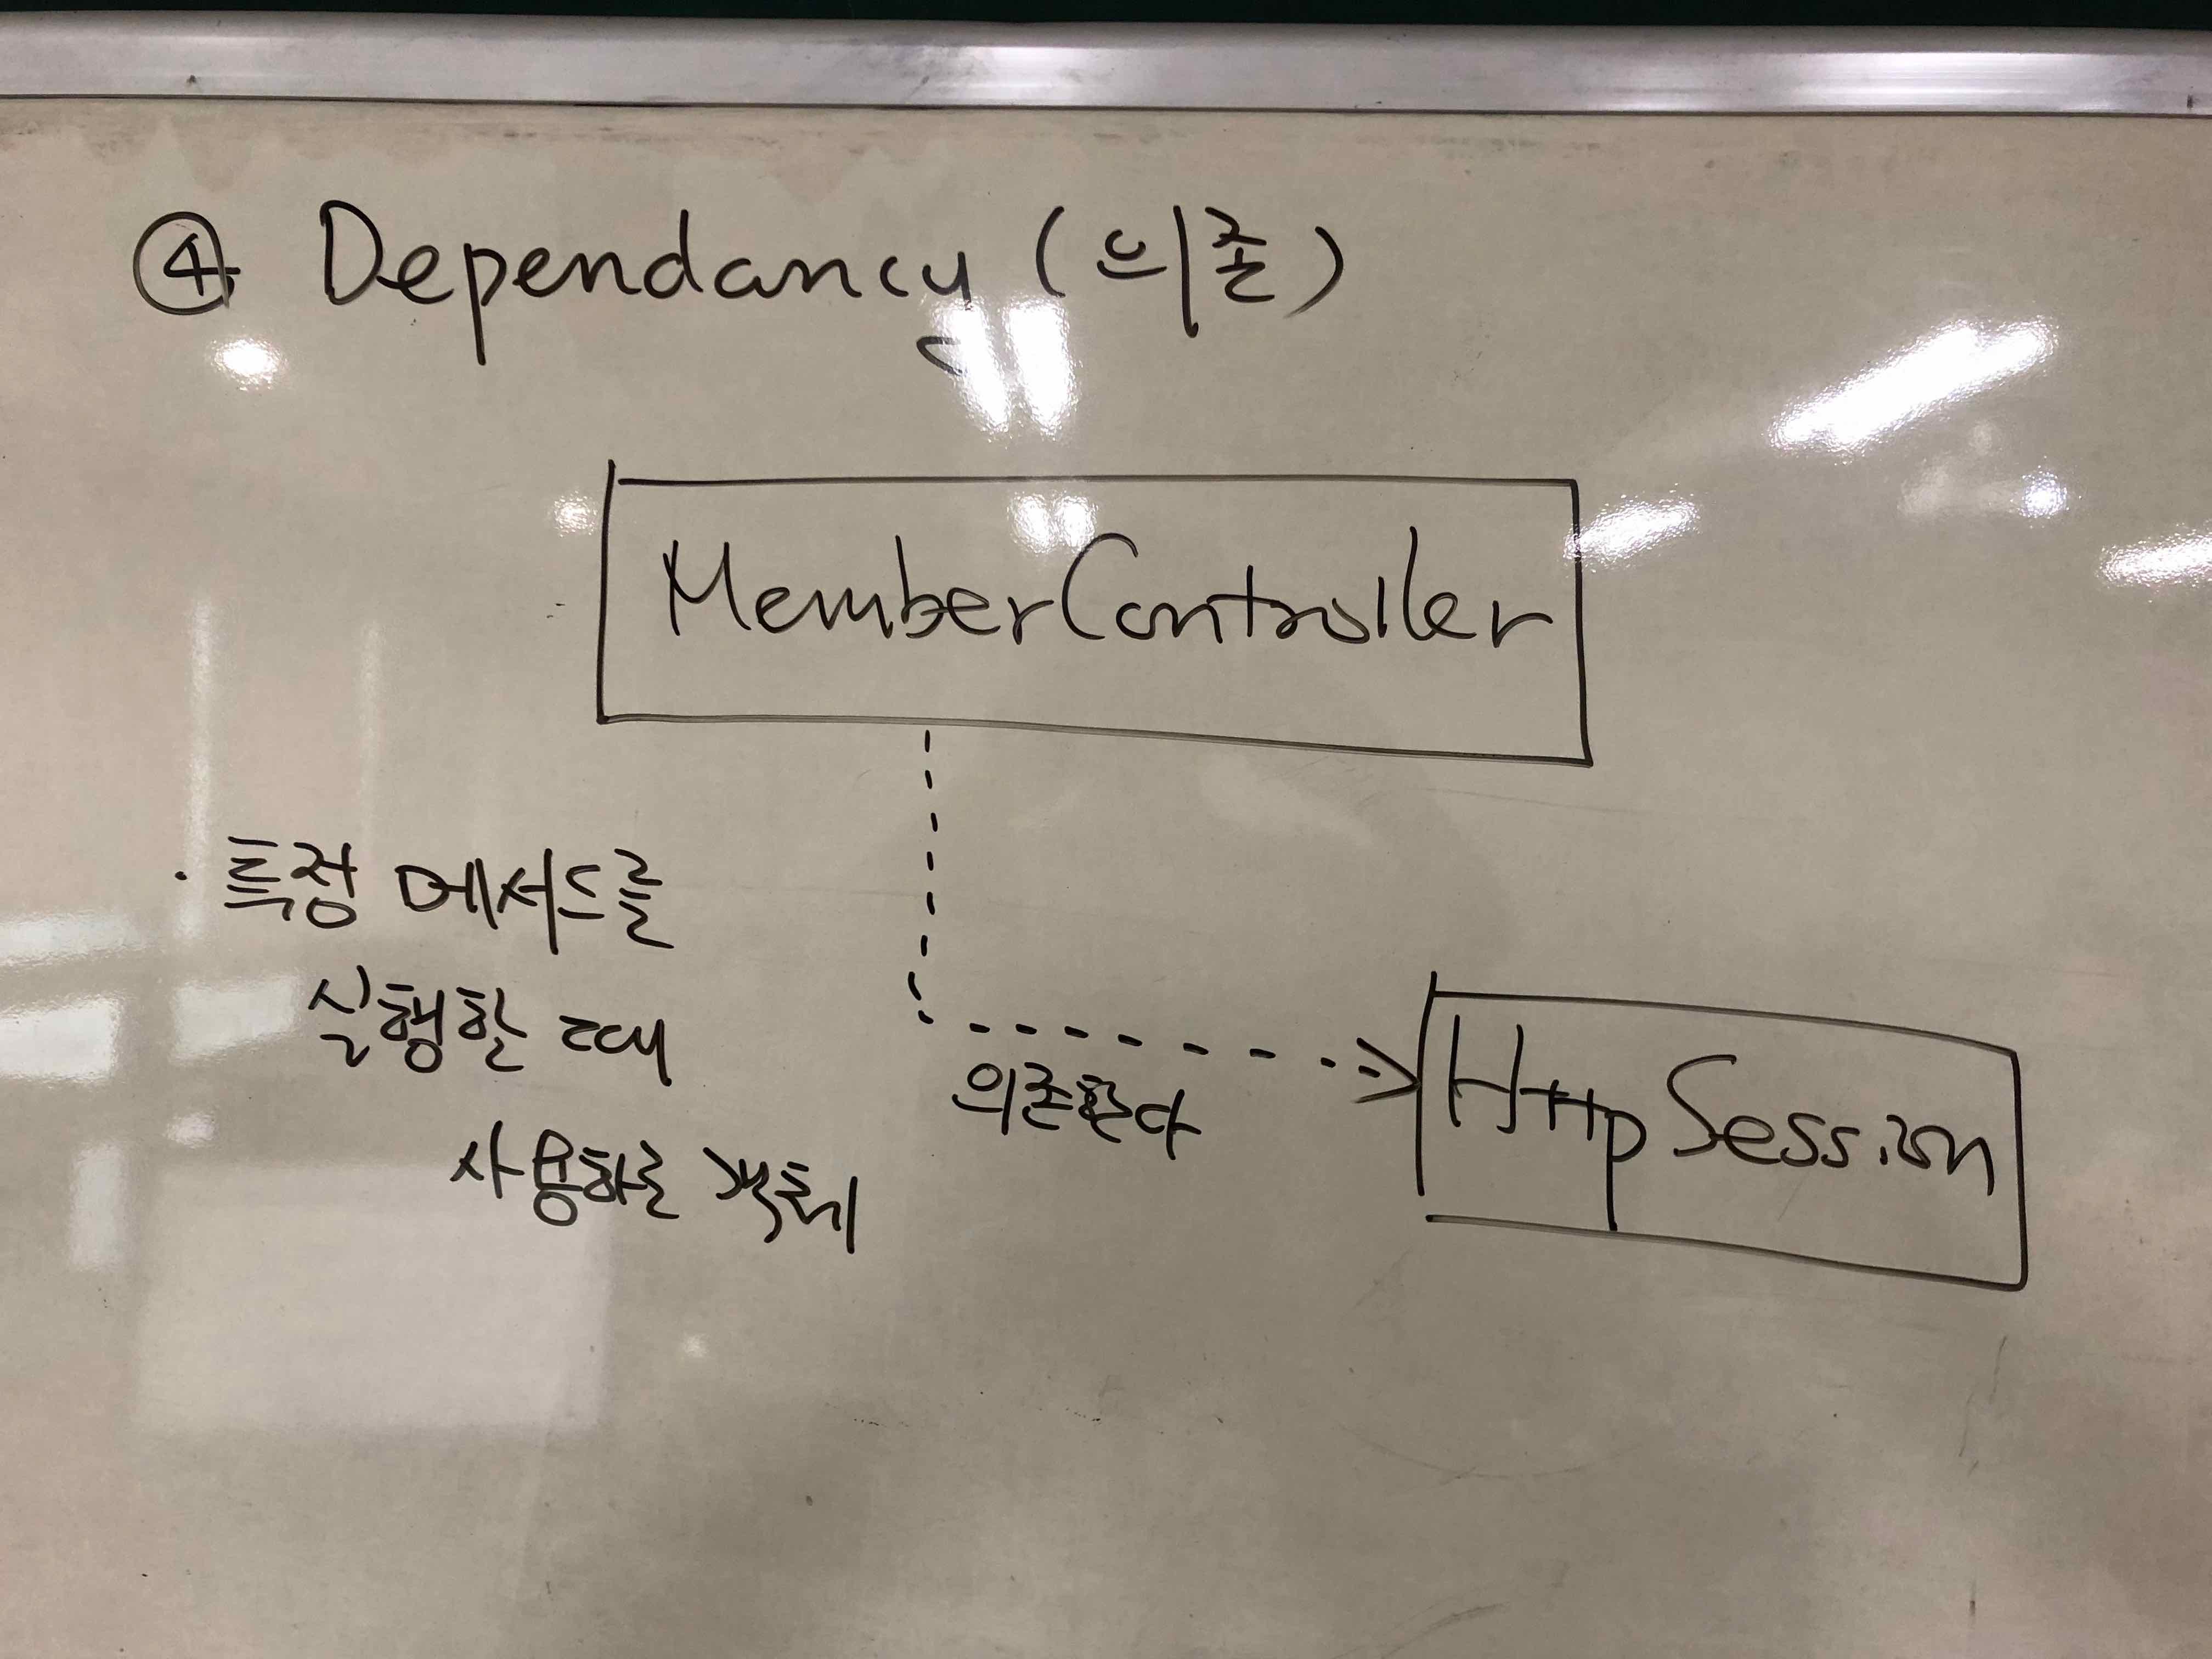 ④ Dependancy (의존)
MemberController
· 특정 메서드를
실행할 때
사용하는 객체
의존한다
HttpSession